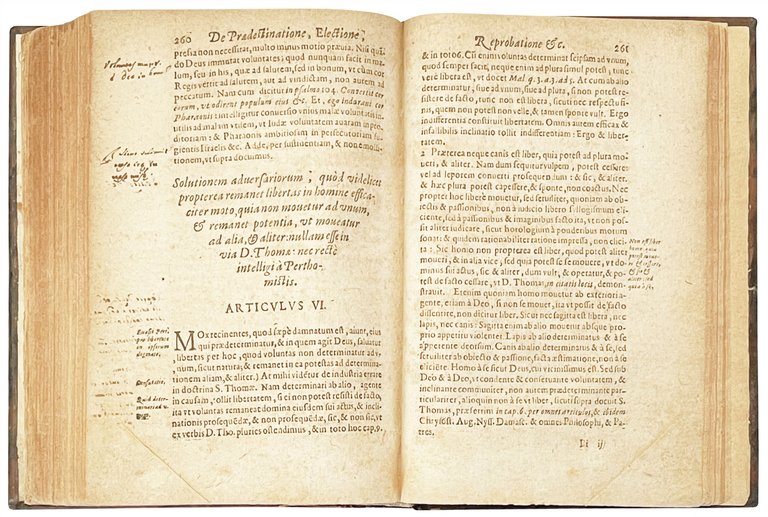 260 De Prædestinatione, Electione,
presia non necessitat, multo minus motio prævia. Nisi quã-
do Deus immutat voluntates; quod nunquam facit in ma-
lum, seu in his, quæ ad salutem, sed in bonum, vt cùm cor
Regis vertit ad salutem, aut ad vindictam, non autem ad
peccatum. Nam cum dicitur in psalmo 104. Conuertit cor
eorum, vt odirent populum eius &c. Et, ego indurani cor
Pharaonis: intelligitur conuersio vnius malæ voluntatis in-
utilis ad malum vtilem, vt Iudæ voluntatem auaram in pro-
ditoriam: & Pharaonis ambitiosam in persecutoriam fu-
gientis Israelis &c. Adde, per sustinentiam, & non emolli-
tionem, vt supra docuimus.
Solutionem aduersariorum; quòd videlicet
propterea remanet libertas in homine effica-
citer moto, quia non mouetur ad vnum,
& remanet potentia, vt moueatur
ad alia, & aliter: nullam esse in
via D. Thomæ: nec rectè
intelligi à Pertho-
mistis.
ARTICVLVS VI.
MOx recinentes, quod sæpè damnatum est, aiunt, eius
qui prædeterminatur, & in quem agit Deus, saluatur
libertas per hoc, quod voluntas non determinatur ad v-
num, sicut natura; & remanet in ea potestas ad determina-
tionem aliam, & aliter.) At mihi vidétur de industria errare
in doctrina S. Thomæ. Nam determinari ab alio, agente
in causam, tollit libertatem, si ei non potest resisti de facto,
ita vt voluntas remaneat domina eiusdem sui actus, & incli-
nationis prosequẽdæ, & non prosequẽdæ, sic, & non sic, vt
ex verbis D. Tho. pluries ostendimus, & in toto hoc cap. 9.
Reprobatione &c. 261
& in toto 6. Cũ enim voluntas determinat seipsam ad vnum,
quod semper facit, neque enim ad plura simul potest; tunc
verè libera est, vt docet Mal. q. 3. a. 3. ad 5. At cum ab alio
determinatur, siue ad vnum, siue ad plura, si non potest re-
sistere de facto, tunc non est libera, sicuti nec respectu fi-
nis, quem non potest non velle, & tamen sponte vult. Ergo
indifferentia constituit libertatem. Omnis autem efficax &
infallibilis inclinatio tollit indifferentiam: Ergo & liber-
tatem.
2 Præterea neque canis est liber, quia potest ad plura mo-
ueri, & aliter. Nam dum sequitur vulpem, potest cessare:
vel ad leporem conuerti prosequendum: & sic, & aliter.
& hæc plura potest capessere, & sponte, non coactus. Nec
propter hoc liberè mouetur, sed seruiliter, quoniam ab ob-
iectis & passionibus, non à iudicio libero syllogismum eli-
ciente, sed à passionibus & imaginibus facto ita, vt non pos-
sit aliter iudicare, sicut horologium à ponderibus motum
sonat: & quidem rationabiliter ratione impressa, non elici-
ta: Sic homo non propterea est liber, quod potest aliter
moueri, & in alia vice, sed quia potest se se mouere, vt do-
minus sui actus, sic & aliter, dum vult, & operatur, & po-
test de facto cessare, vt D. Thomas, in citatis locis, demon-
strauit. Etenim quoniam homo mouetur ab exteriori a-
gente, etiam à Deo, si non se mouet, ita vt possit de facto
dissentire, non dicitur liber. Sicut nec sagitta est libera, nec
lapis, nec canis: Sagitta enim ab alio mouetur absque pro-
prio appetitu violenter. Lapis ab alio determinatus & à se
appetente deorsum. Canis ab alio determinatus & à se, sed
seruiliter ab obiecto & passione, facta æstimatione, non à se
elicitè. Homo à se sicut Deus, cui vicinissimus est. Sed sub
Deo & à Deo, vt condente & conseruante voluntatem, &
inclinante communiter, non autem prædeterminante par-
ticulariter, alioquin non à se vt liber, sicuti supra docuit S.
Thomas, præsertim in cap. 6. per omnes articulos, & ibidem
Chrysost. Aug. Nyss. Damasc. & omnes Philosophi, & Pa-
tres.
Ll ij